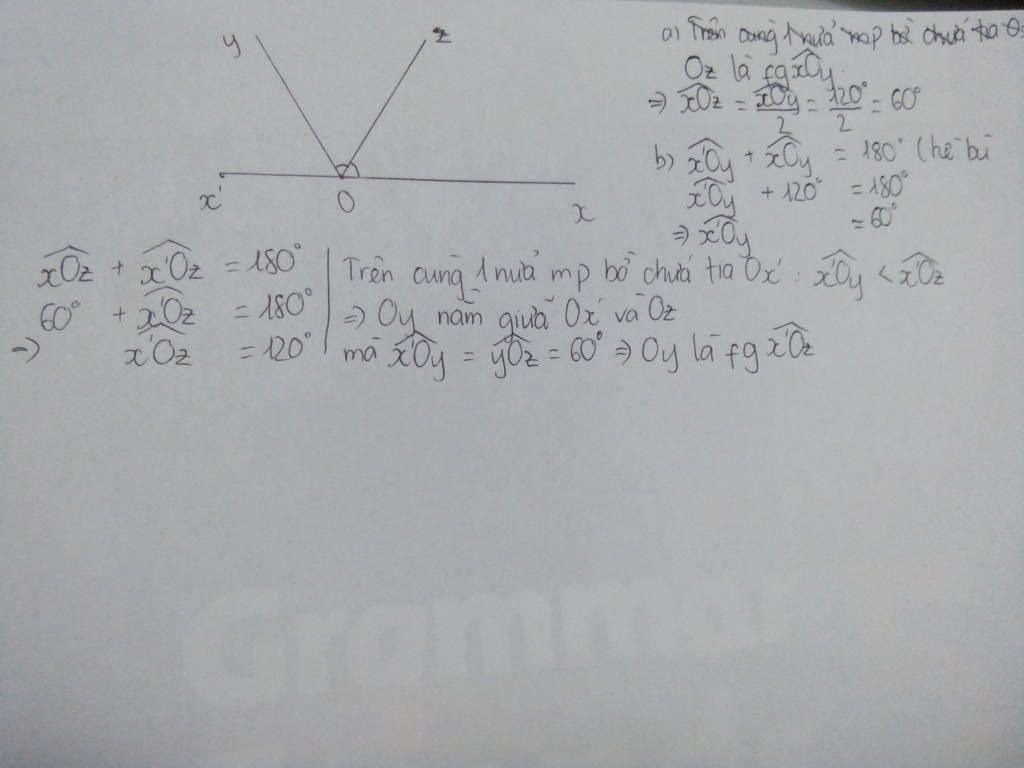 y
z
x'
O
x
a) Trên cùng 1 nửa mp bờ chứa tia
Oz là fg x̂Oy.
⇒ x̂Oz = x̂Oy/2 = 120°/2 = 60°
b) x̂'Oy + x̂Oy = 180° (kề bù
x̂'Oy + 120° = 180°
⇒ x̂'Oy = 60°
x̂Oz + x̂'Oz = 180°
60° + x̂'Oz = 180°
⇒ x̂'Oz = 120°
Trên cùng 1 nửa mp bờ chứa tia Ox' : x̂'Oy < x̂'Oz
⇒ Oy nằm giữa Ox' và Oz
mà x̂'Oy = ŷOz = 60° ⇒ Oy là fg x̂'Oz
Grammar